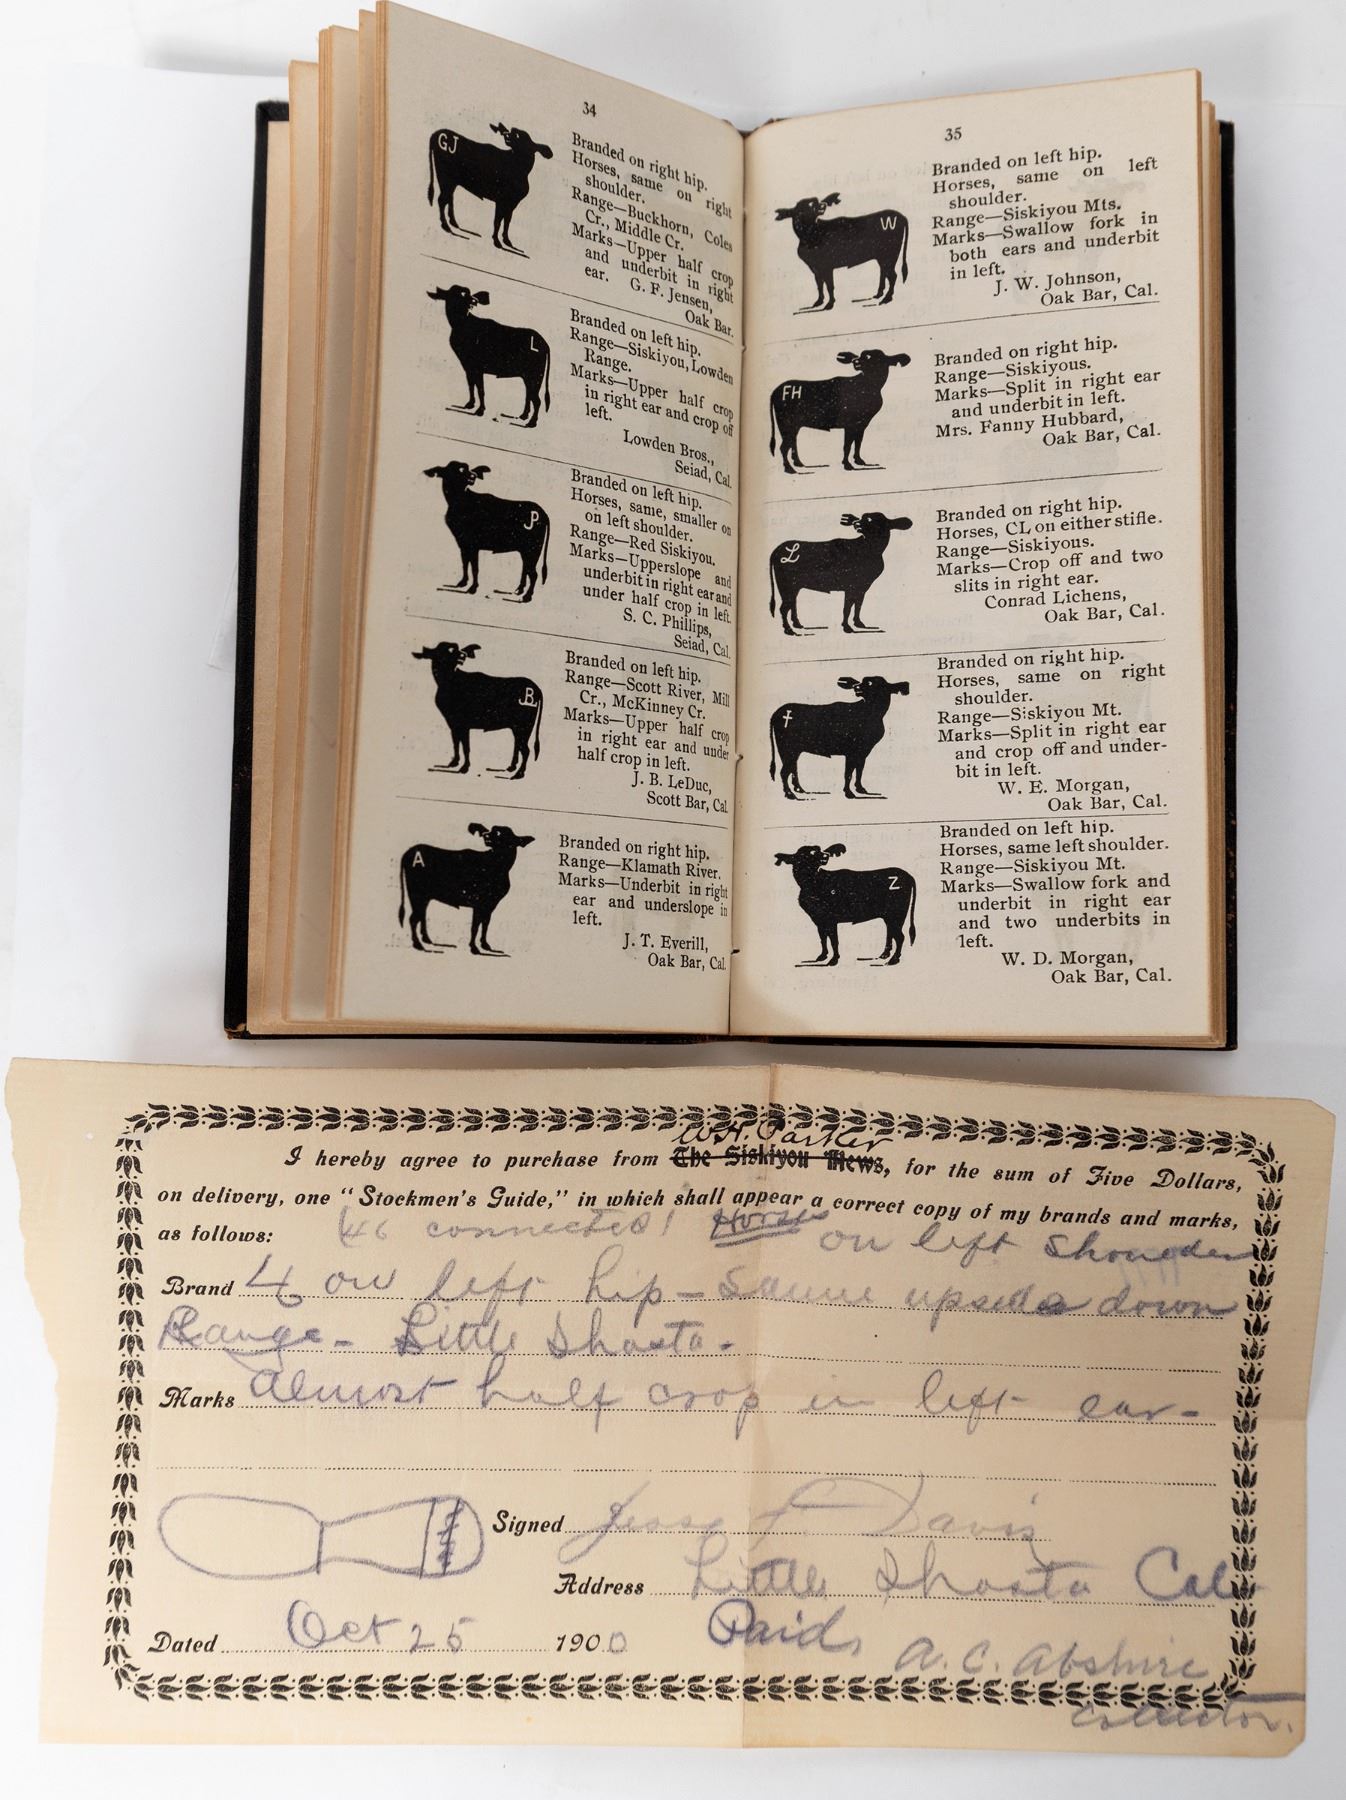 34
GJ
Branded on right hip.
Horses, same on right
shoulder.
Range—Buckhorn, Coles
Cr., Middle Cr.
Marks—Upper half crop
and underbit in right
ear. G. F. Jensen,
Oak Bar.
L
Branded on left hip.
Range—Siskiyou, Lowden
Range.
Marks—Upper half crop
in right ear and crop off
left.
Lowden Bros.,
Seiad, Cal.
JP
Branded on left hip.
Horses, same, smaller on
on left shoulder.
Range—Red Siskiyou.
Marks—Upperslope and
underbit in right ear and
under half crop in left.
S. C. Phillips,
Seiad, Cal.
B
Branded on left hip.
Range—Scott River, Mill
Cr., McKinney Cr.
Marks—Upper half crop
in right ear and under
half crop in left.
J. B. LeDuc,
Scott Bar, Cal.
A
Branded on right hip.
Range—Klamath River.
Marks—Underbit in right
ear and underslope in
left.
J. T. Everill,
Oak Bar, Cal.
35
W
Branded on left hip.
Horses, same on left
shoulder.
Range—Siskiyou Mts.
Marks—Swallow fork in
both ears and underbit
in left.
J. W. Johnson,
Oak Bar, Cal.
FH
Branded on right hip.
Range—Siskiyous.
Marks—Split in right ear
and underbit in left.
Mrs. Fanny Hubbard,
Oak Bar, Cal.
Branded on right hip.
Horses, CL on either stifle.
Range—Siskiyous.
Marks—Crop off and two
slits in right ear.
Conrad Lichens,
Oak Bar, Cal.
Branded on right hip.
Horses, same on right
shoulder.
Range—Siskiyou Mt.
Marks—Split in right ear
and crop off and under-
bit in left.
W. E. Morgan,
Oak Bar, Cal.
Z
Branded on left hip.
Horses, same left shoulder.
Range—Siskiyou Mt.
Marks—Swallow fork and
underbit in right ear
and two underbits in
left.
W. D. Morgan,
Oak Bar, Cal.
W.H. Parker
I hereby agree to purchase from The Siskiyou News, for the sum of Five Dollars,
on delivery, one "Stockmen's Guide," in which shall appear a correct copy of my brands and marks,
as follows: 46 connected! Horses on left shoulder
Brand 4 on left hip - Same upside down
Range - Little Shasta -
Marks Almost half crop in left ear -
Signed Jesse F. Davis
Address Little Shasta Cal
Dated Oct 25 1900 Paid, A. C. Abshire
Collector.